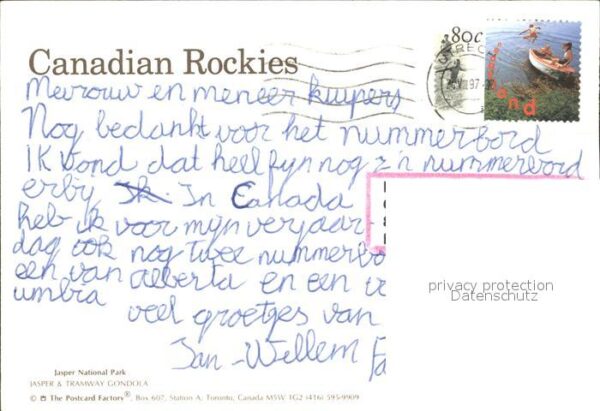 Canadian Rockies
80c
Mevrouw en meneer kuipers
Nog bedankt voor het nummerbord
Ik vond dat heel fyn nog z'n nummerbord
erby. In Canada
heb ik voor mijn verjaar
dag ook nog twee nummerbo
een van alberta en een
umbria
veel groetjes van
Jan-Willem
privacy protection
Datenschutz
Jasper National Park
JASPER & TRAMWAY GONDOLA
© The Postcard Factory®, Box 607, Station A, Toronto, Canada M5W 1G2 (416) 595-9909